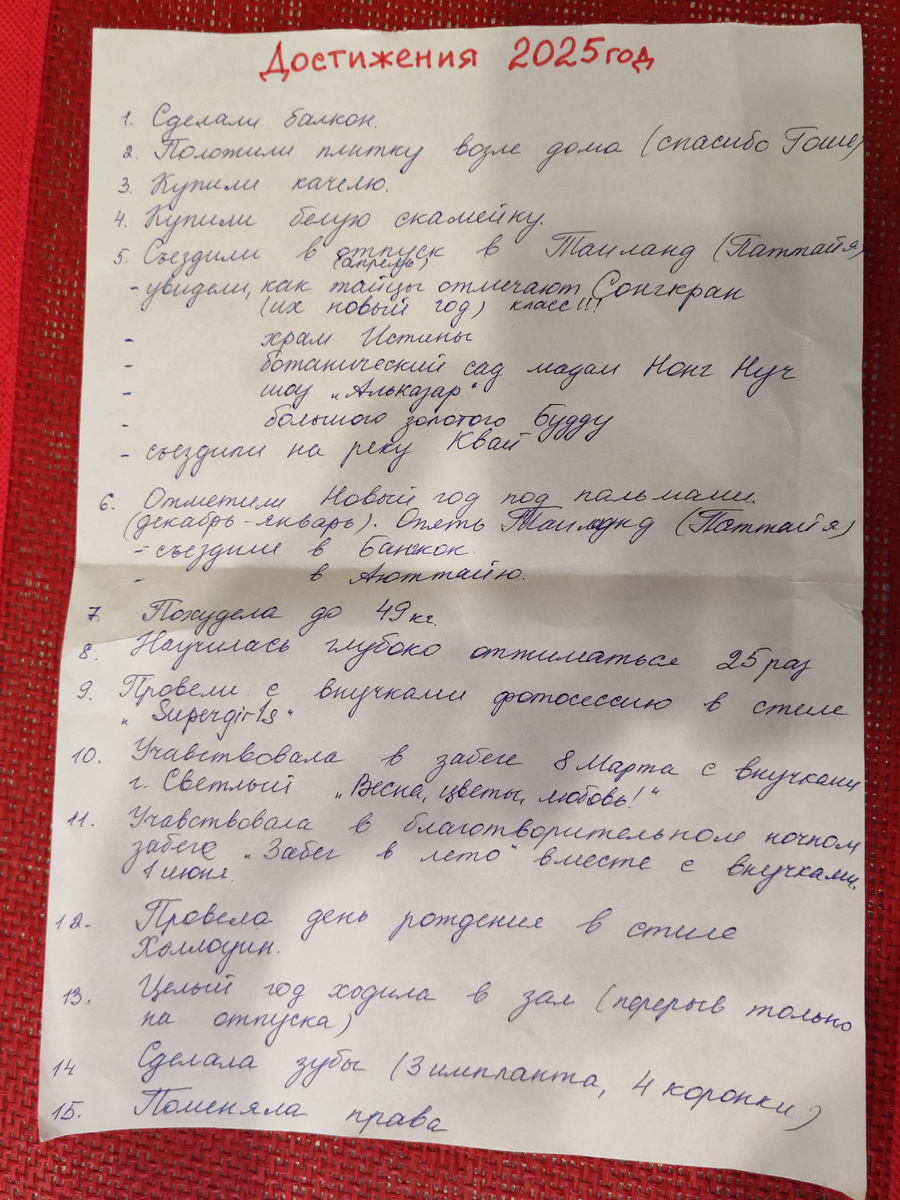 Достижения 2025 год
1. Сделали балкон.
2. Положили плитку возле дома (спасибо Гоше)
3. Купили качелю.
4. Купили белую скамейку.
5. Съездили в отпуск в Таиланд (Паттайя)
(апрель)
- увидели, как тайцы отмечают Сонгкран
(их новый год) класс!!!
- храм Истины
- ботанический сад мадам Нонг Нуч
- шоу „Альказар"
- большого золотого Будду
- съездили на реку Квай
6. Отметили Новый год под пальмами.
(декабрь-январь). Опять Таиланд (Паттайя)
- съездили в Банкок.
- в Аюттайю.
7. Похудела до 49 кг.
8. Научилась глубоко отжиматься 25 раз
9. Провели с внучками фотосессию в стиле
„Supergirls"
10. Учавствовала в забеге 8 Марта с внучками
г. Светлый „Весна, цветы, любовь!"
11. Учавствовала в благотворительном ночном
забеге „Забег в лето" вместе с внучками.
1 июня.
12. Провела день рождения в стиле
Хэллоуин.
13. Целый год ходила в зал (перерыв только
на отпуска)
14 Сделала зубы (3 импланта, 4 коронки)
15. Поменяла права